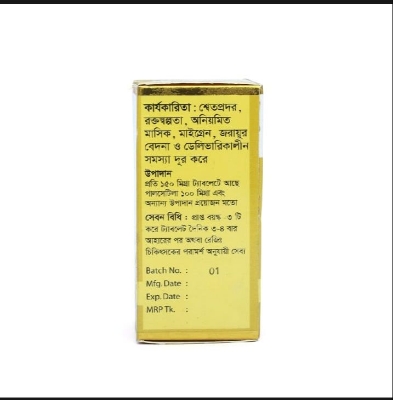 কার্যকারিতা : শ্বেতপ্রদর,
রক্তস্বল্পতা, অনিয়মিত
মাসিক, মাইগ্রেন, জরায়ুর
বেদনা ও ডেলিভারিকালীন
সমস্যা দূর করে
উপাদান
প্রতি ১৫০ মিগ্রা ট্যাবলেটে আছে
পালসেটিলা ১০০ মিগ্রা এবং
অন্যান্য উপাদান প্রয়োজন মতো
সেবন বিধি : প্রাপ্ত বয়স্ক ৩ টি
করে ট্যাবলেট দৈনিক ৩-৪ বার
আহারের পর অথবা রেজিঃ
চিকিৎসকের পরামর্শ অনুযায়ী সেব্য
Batch No. : 01
Mfg. Date :
Exp. Date :
MRP Tk. :